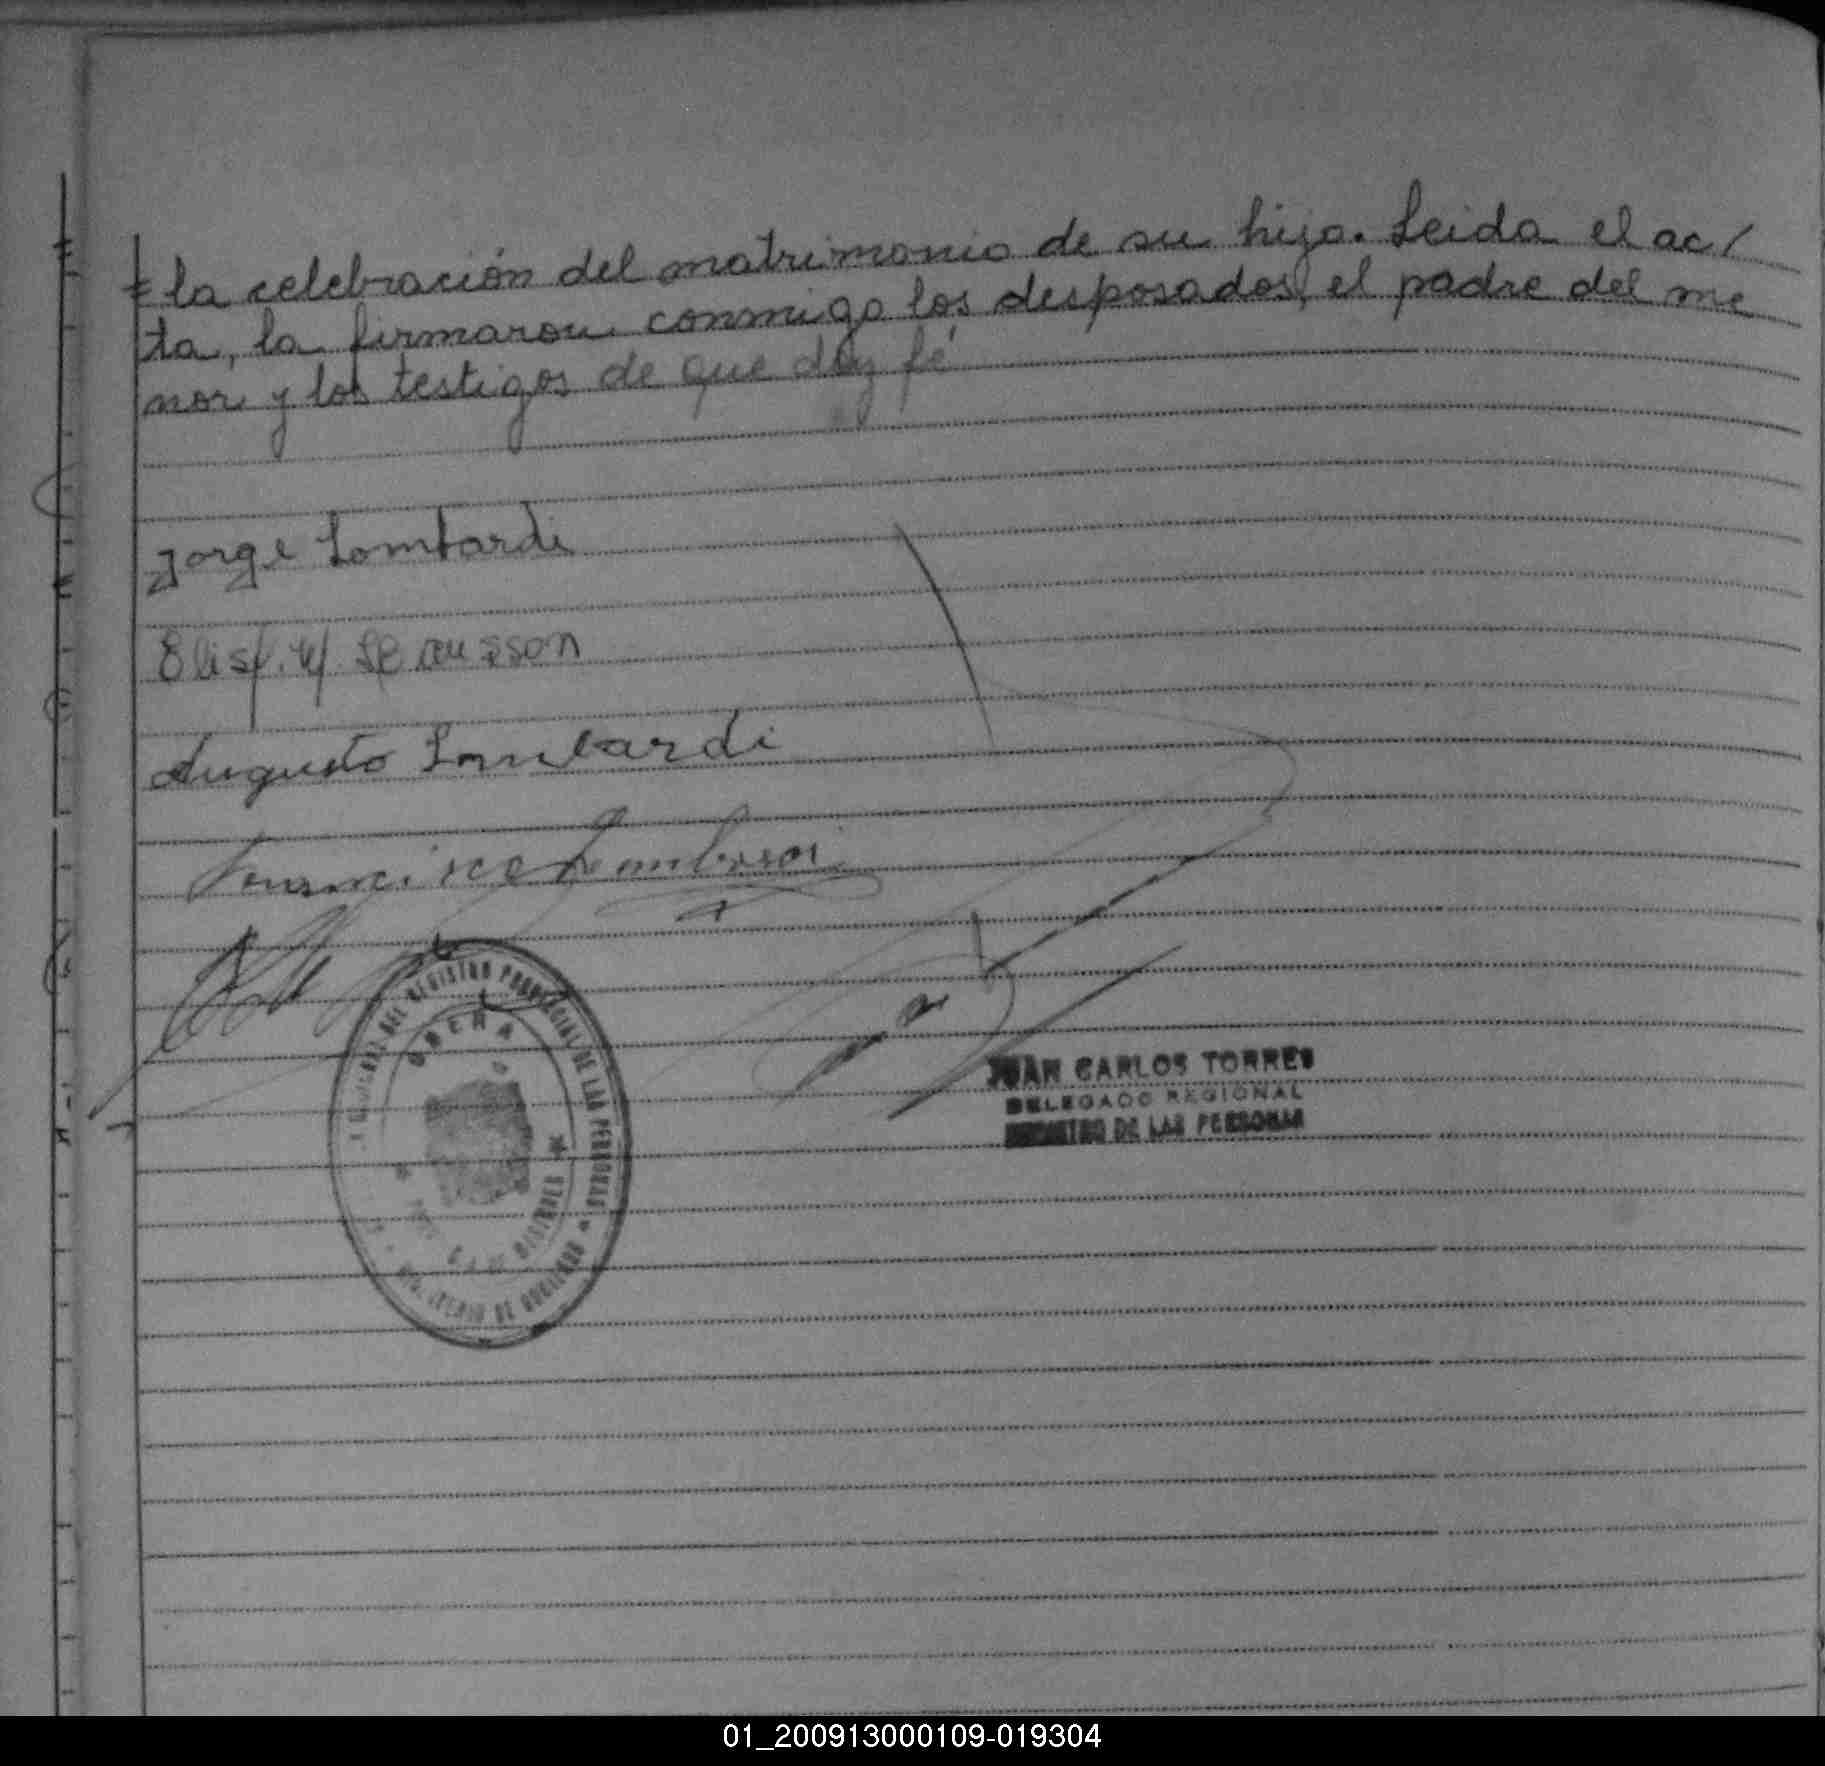 la celebración del matrimonio de su hijo. Leida el ac/
ta, la firmaron conmigo los desposados, el padre del me
nor y los testigos de que doy fé
Jorge Lombardi
Augusto Lombardi
Francisco
DEL REGISTRO PROVINCIAL DE LAS PERSONAS
OBERA
DE MISIONES
MINISTERIO DE GOBIERNO
JUAN CARLOS TORRES
DELEGADO REGIONAL
REGISTRO DE LAS PERSONAS
01_200913000109-019304